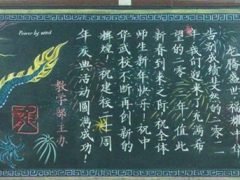 龙腾盛世福
告别成绩的二零一
我们迎来了充满希
望的二零一二年值此
新春到来之际祝全体
师生新年快乐！祝中
华武校不断再创新的
辉煌！祝建校周
年庆典活动圆满成功！
教学部主办
Power by